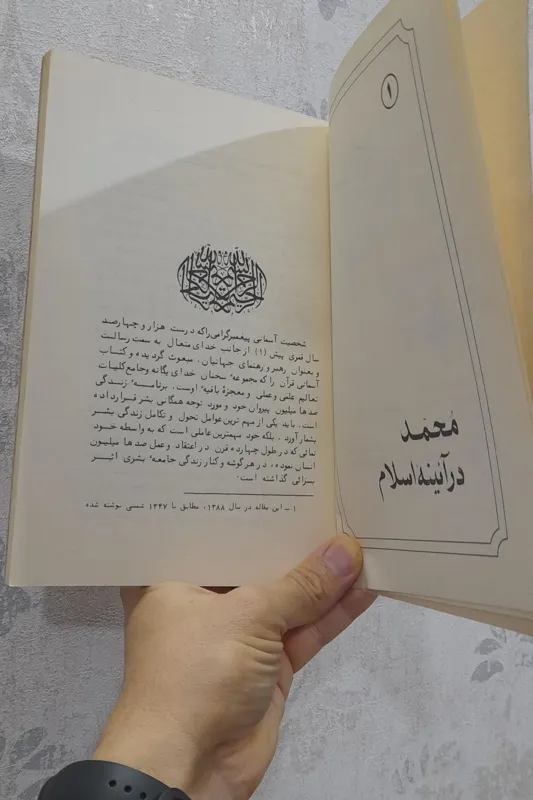 ۱
محمّد
در آئینهٔ اسلام
بسم الله الرحمن الرحیم
شخصیت آسمانی پیغمبرگرامی راکه درست هزار و چهارصد
سال قمری پیش (۱) از جانب خدای متعال به سمت رسالت
و بعنوان رهبر و رهنمای جهانیان، مبعوث گردیده و کتاب
آسمانی قرآن را که مجموعهٔ سخنان خدای یگانه و جامع کلیات
تعالیم علمی و عملی و معجزهٔ باقیهٔ اوست، برنامهٔ زندگی
صدها میلیون پیروان خود و مورد توجه همگانی بشر قرار داده
است، باید یکی از مهم ترین عوامل تحول و تکامل زندگی بشر
بشمار آورد، بلکه خود مهمترین عاملی است که به واسطه خود
نمائی که در طول چهارده قرن در اعتقاد و عمل صدها میلیون
انسان نموده، در هر گوشه و کنار زندگی جامعهٔ بشری اثر
بسزائی گذاشته است.
۱ ــ این مقاله در سال ۱۳۸۸، مطابق با ۱۳۴۷ شمسی نوشته شده